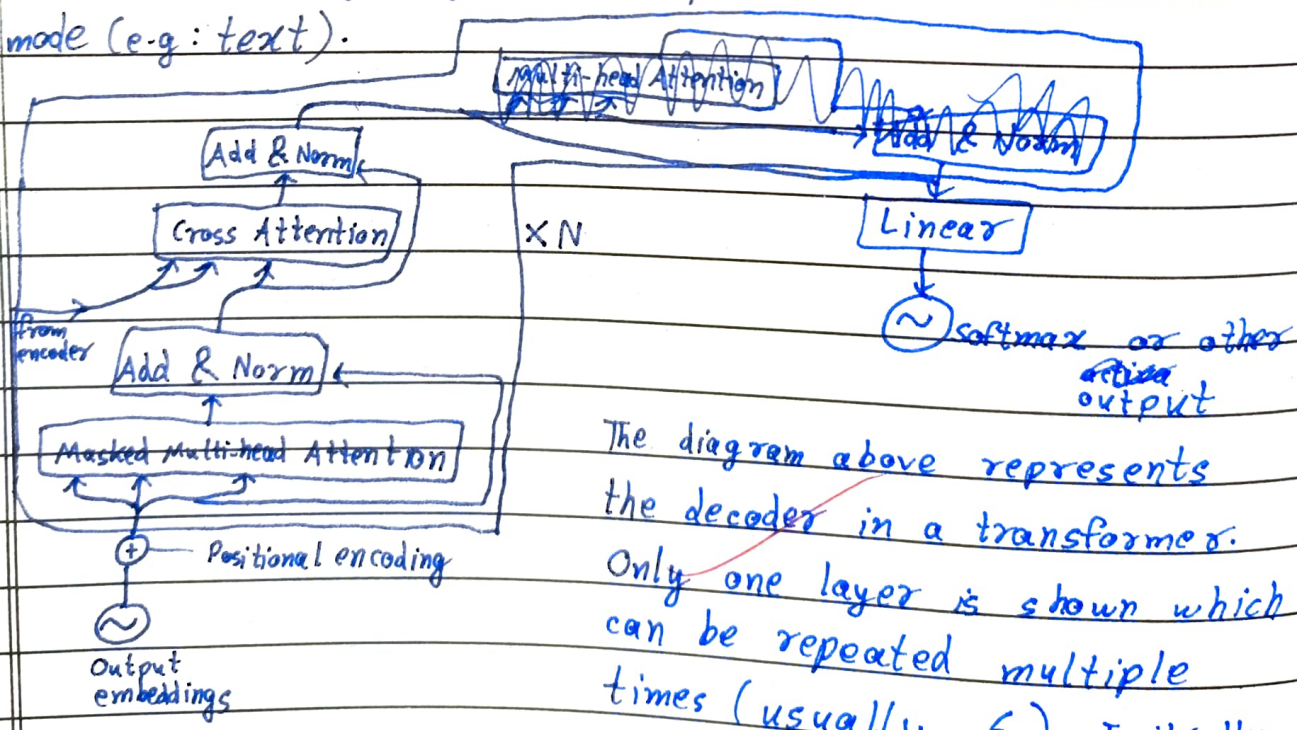 mode (e.g : text).
Multi-head Attention
Add & Norm
Add & Norm
Cross Attention
× N
Linear
from
encoder
softmax or other
output
Add & Norm
Masked Multi-head Attention
Positional encoding
Output
embeddings
The diagram above represents
the decoder in a transformer.
Only one layer is shown which
can be repeated multiple
times (usually 6).